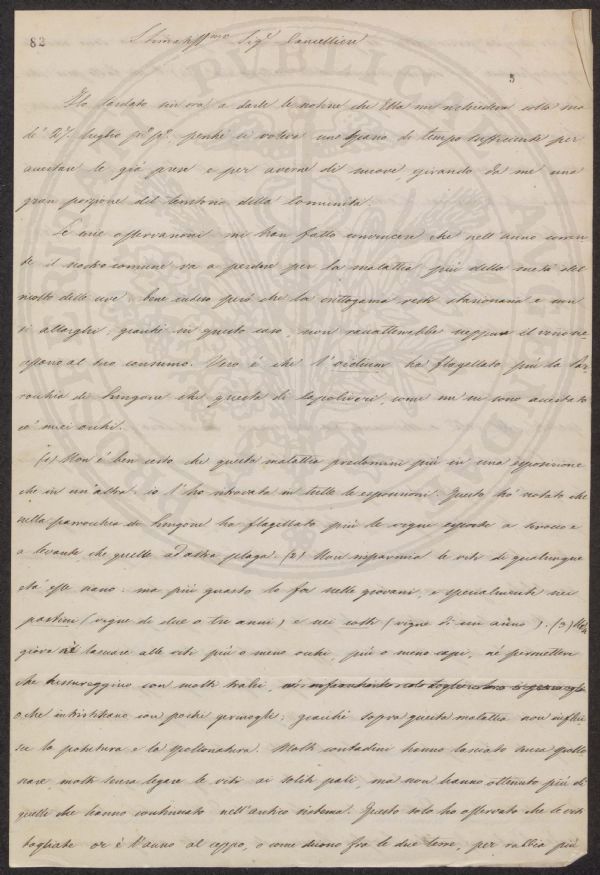 82
Stimatiss.mo Sig.r Cancelliere
5
Ho tardato sin ora a darle le notizie che Ella mi richiedeva colla sua
de' 27. luglio p.o p.o perché ci voleva uno spazio di tempo sufficiente per
accertare le già prese e per averne di nuove, girando da me una
gran porzione del territorio della Comunità.
Le mie osservazioni mi han fatto convincere che nell'anno corren
te il nostro comune va a perdere per la malattia più della metà del
ricolto delle uve: bene inteso però che la crittogama resti stazionaria e non
si allarghi; giacché in questo caso, non raccatterebbe neppure il vino ne-
cessario al suo consumo. Vero è che l'oidium ha flagellato più la Par
rocchia di Lungone che questa di Capoliveri, come mi ne sono accertato
co' miei occhi.
(1) Non è ben certo che questa malattia predomini più in una esposizione
che in un'altra: io l'ho ritrovata in tutte le esposizioni. Questo ho notato che
nella parrocchia di Lungone ha flagellato più le vigne esposte a scirocco e
a levante, che quelle ad altra plaga. (2) Non risparmia le viti di qualunque
età esse siano: ma più guasto lo fa nelle giovani, e specialmente nei
pastini (vigne di due o tre anni) e nei (vigne di un anno). (3) Non
giova il lasciare alle viti più o meno occhi, più o meno capi, né permettere
che lussureggino con molti tralci,
o che intristiscano con pochi germogli; giacché sopra questa malattia non influi-
sce la potatura e la spollonatura. Molti contadini hanno lasciato senza spollo
nare, molti senza legare le viti ai soliti pali, ma non hanno ottenuto più di
quelli che hanno continuato nell'antico sistema. Questo solo ho osservato che le viti
tagliate or è l'anno al ceppo, o come dicono fra le due terre, per rabbia più